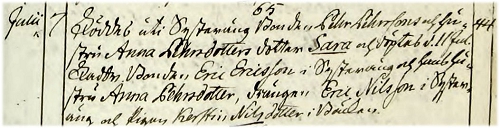 65
Julii 7 Föddes uti Systeräng Bonden Pehr Pehrssons och hu-
stru Anna Pehrsdotters dotter Sara och döptes d. 11 Jul.
Faddr. Bonden Eric Ericsson i Systeräng och hans hu-
stru Anna Pehrsdotter, Drängen Eric Nilsson i Syster-
äng och Pigan Kerstin Nilsdotter i Backen.
44